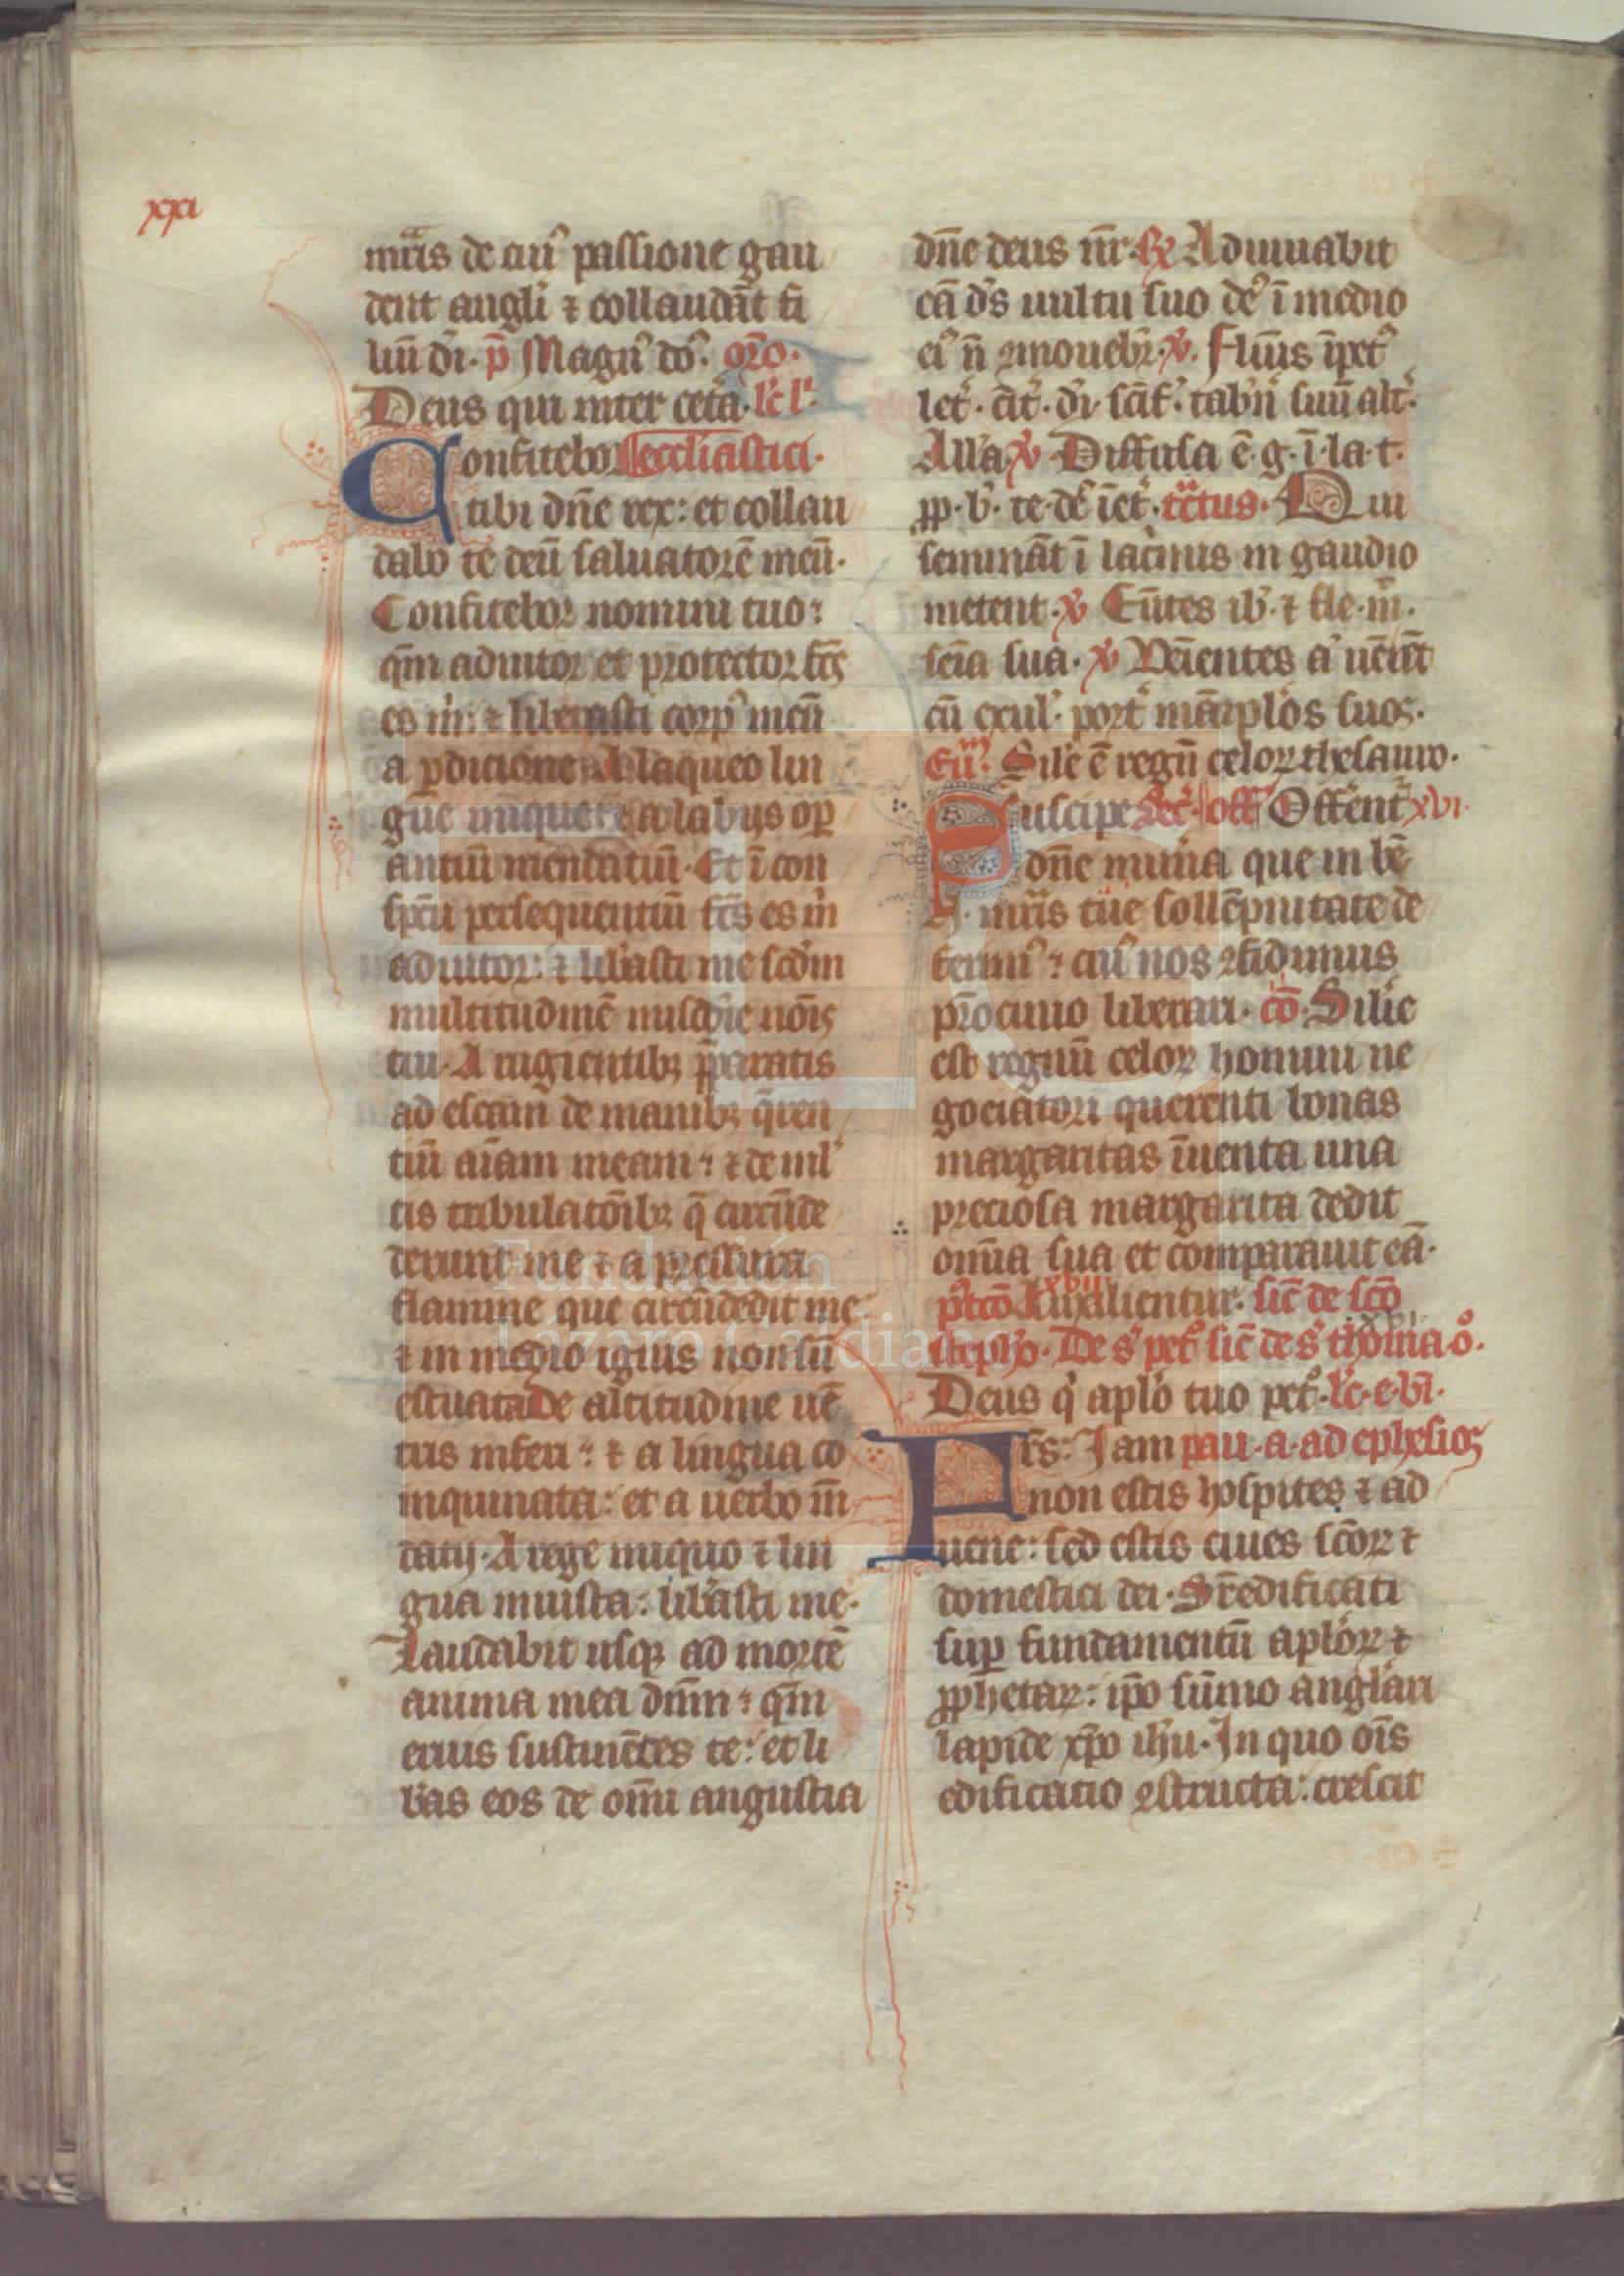 xxi
mr̃is de cui᷒ passione gau
dent angli ⁊ collaudãt fi
liũ dĩ. p̃ Magn᷒ dõ. oro.
Deus qui inter cet̃a. lc̃ l'.
Confitebor eccliastici.
tibi dñe rex: et collau
dabo te deũ saluatorẽ meũ.
Confitebor nomini tuo:
qm̃ adiutor et protector fc̃s
es m': ⁊ liberasti corp᷒ meũ
a ꝑdicione a laqueo lin
gue inique et a labijs oꝑ
antiũ mendatiũ. Et ĩ con
spc̃u persequentiũ fc̃s es m'
adiutor: ⁊ lib'asti me scdm
multitudinẽ mis̃cdie nõis
tui. A rugientibꝫ p̃paratis
ad escam de manibꝫ q̃ren
tiũ aĩam meam: ⁊ de mul
tis tribulatõibꝫ q̃ circũde
derunt me ⁊ a pressura
flamme que circũdedit me
⁊ in medio ignis non sũ
estuata De altitudine uẽ
tris inferi: ⁊ a lingua co
inquinata: et a uerbo m̃
datij. A rege iniquo ⁊ lin
gua iniusta: lib'asti me.
Laudabit usqꝫ ad mortẽ
anima mea dm̃n: qm̃
eruis sustinẽtes te: et li
b'as eos de om̃i angustia
dñe deus nr̃. R Adiuuabit
eã d's uultu suo de᷒ ĩ medio
ei᷒ ñ ꝯmouebr̃. v. Flum̃s ĩpet᷒
let'. c̃it. dĩ. sc̃if'. tab'ñ suũ alt'.
All'a v Diffusa ẽ. g. ĩ. la. t.
ꝓp. b'. te. de᷒ ĩet'. tc̃tus. Qui
seminãt ĩ lac̃mis in gaudio
metent. v Eũtes ib'. ⁊ fle. m̃.
seĩa sua. v Uẽientes a᷒ uẽiñt
cũ exul'. port' mãiplos suos.
Eũm. Sile ẽ regñ celoꝝ thesauro.
Suscipe Sec'. off' Offẽnt' xvi
dñe mun'a que in bẽ
M. mr̃is tue sollẽpnitate de
ferim᷒: cui᷒ nos ꝯfidimus
pr̃ocinio liberari. cõ. Sil'e
est regnũ celoꝝ homini ne
gociatori querenti bonas
margaritas ĩuenta una
preciosa margarita dedit
om̃ia sua et comparauit eã.
p'tcõ Auxilientur. sic̃ de sc̃o
steph'o. De s' pet' sic̃ de s' thoma o᷒.
Deus q' aplo tuo pet'. lc̃. e. bl̃.
Frs: Jam pau. a. ad ephesios
non estis hospites ⁊ ad
uene: sed estis ciues sc̃oꝝ ⁊
domestici dei. Sr̃edificati
suꝑ fundamentũ aploꝝ ⁊
ꝓphetaꝝ: ip̃o sũmo angl'ari
lapide xp̃o ih̃u. In quo oĩs
edificatio ꝯstructa: crescit
Fundación
Lázaro Galdiano
FLG